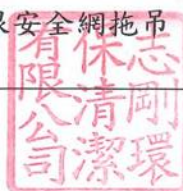 安全網拖吊
志剛環
保清潔
有限公司